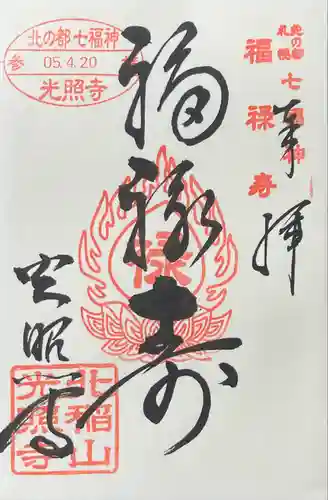 北の都七福神
参 05.4.20
光照寺
北の都
札幌
七福神
福禄寿
奉拝
福禄寿
禄
光照寺
北稲山
光照寺